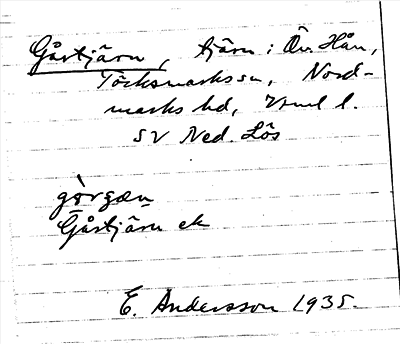 Gårtjärn, tjärn i Ön. Hån,
Töcksmarks sn, Nord-
marks hd, Vrml l.
SV Ned. Lös

Gårtjärn ek
E. Andersson 1935.